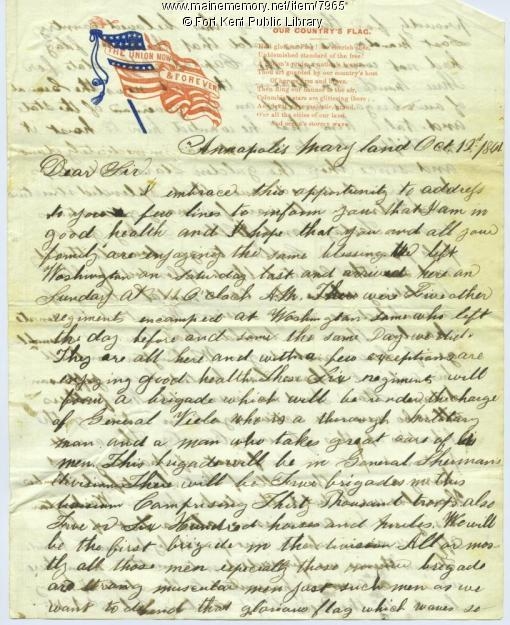 www.mainememory.net/item/7965
© Fort Kent Public Library
THE UNION NOW
& FOREVER
OUR COUNTRY'S FLAG.
Unblemished standard of the free!
Thou art guarded by our country's host
Then fling our banner to the air,
stars are glittering there;
O'er all the cities of our land,
And ocean's stormy wave.
Annapolis Maryland Oct 12
Dear Sir
I embrace this opportunity to address
to you a few lines to inform you that I am in
good health and I hope that you and all your
family are enjoying the same blessing We left
Washington on Saturday last and arrived here on
Sunday at O clock A.M. There were Five other
regiments encamped at Washington some who left
the day before and some the same Day we did.
They are all here and with a few exceptions are
enjoying good health These Six regiments will
form a brigade which will be under the charge
of General Viele who is a thorough military
man and a man who takes great care of his
men. This brigade will be in General Shermans
division There will be brigades in this
division Comprising Thirty Thousand troops also
Five or Six Hundred horses and mules. We will
be the first brigade in the division All or mos-
tly all those men especially those in our brigade
are strong muscular men just such men as we
want to defend that glorious flag which waves so